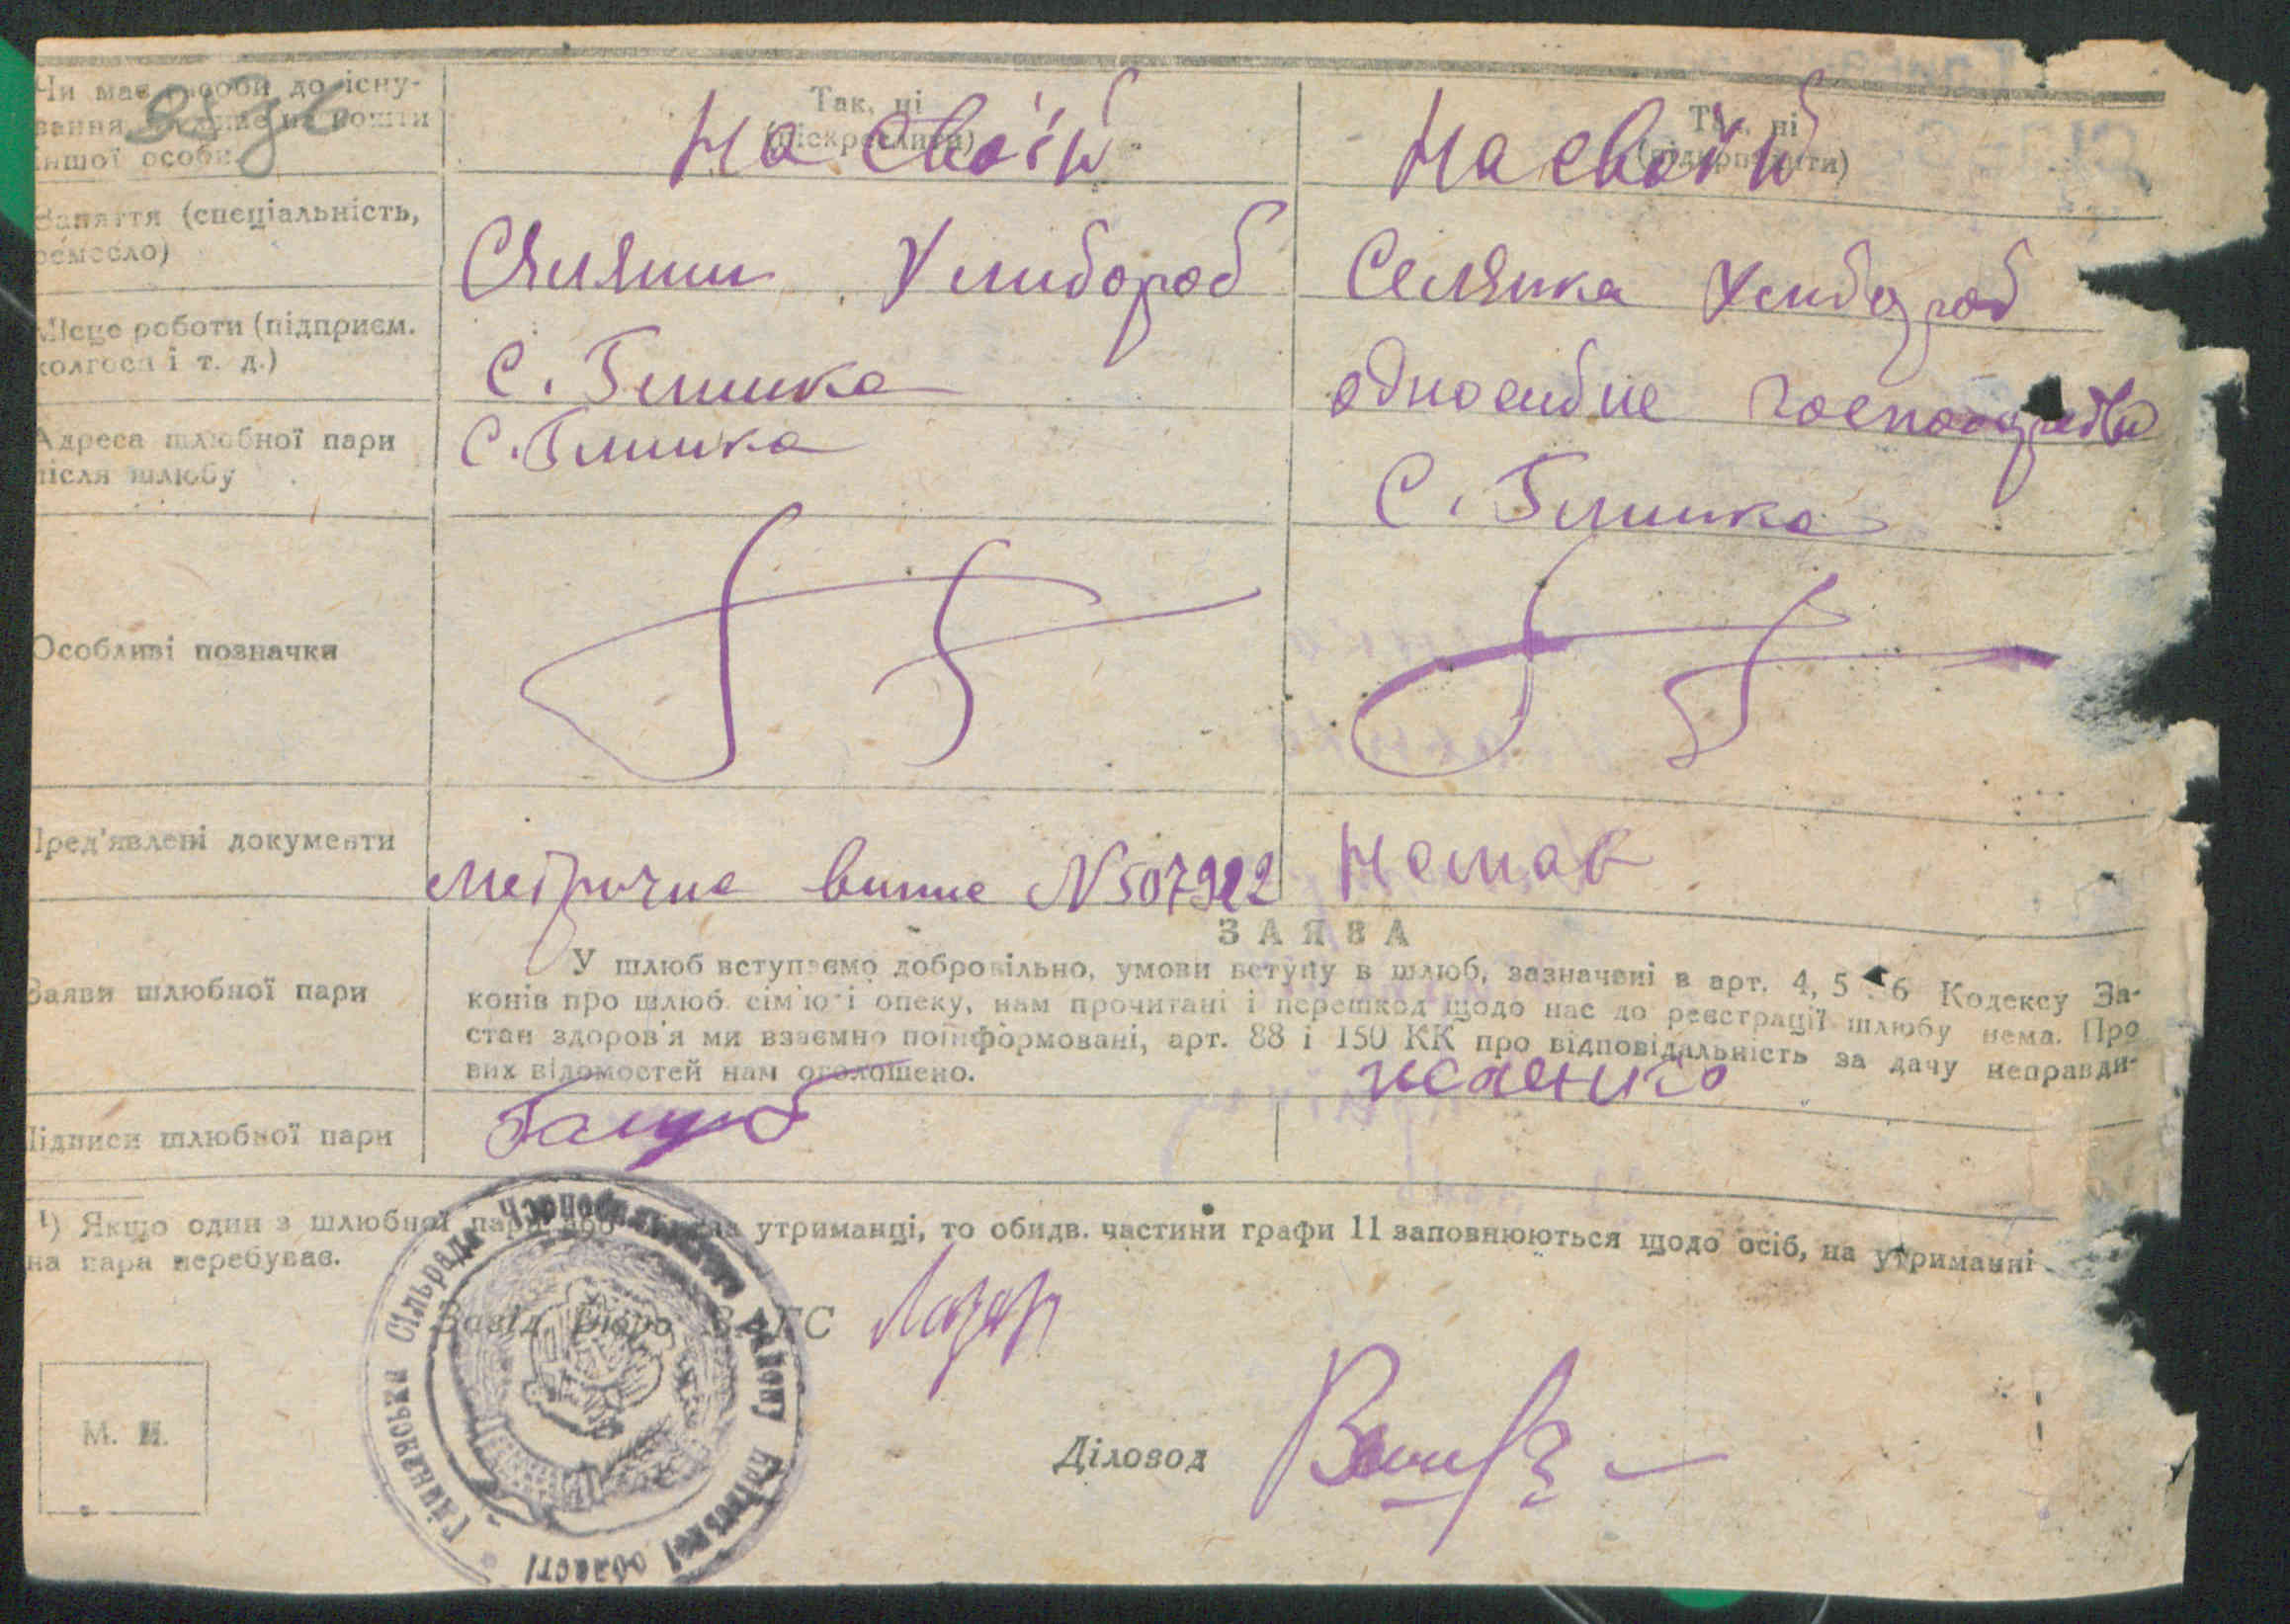 Чи має засоби до існу-
вання чи живе на кошти
іншої особи
Так, ні
(підкреслити)
На своїй
Так, ні
(підкреслити)
На своїй
Заняття (спеціальність,
ремесло)
Селянин Хлибороб
Селянка Хлибороб
Місце роботи (підприєм.
колгосп і т. д.)
С. Глинка
односибне господарство
Адреса шлюбної пари
після шлюбу
С. Глинка
С. Глинка
Особливі позначки
Пред'явлені документи
метрична випис N 507922
Немає
ЗАЯВА
Заяви шлюбної пари
У шлюб вступаємо добровільно, умови вступу в шлюб, зазначені в арт. 4, 5 і 6 Кодексу За-
конів про шлюб, сім'ю і опеку, нам прочитані і перешкод щодо нас до реєстрації шлюбу нема. Про
стан здоров'я ми взаємно поінформовані, арт. 88 і 150 КК про відповідальність за дачу неправди-
вих відомостей нам оголошено.
Підписи шлюбної пари
¹) Якщо один з шлюбної пари або утриманці, то обидв. частини графи 11 заповнюються щодо осіб, на утриманні
на пара перебуває.
Завід. Бюро ЗАГС
М. П.
Діловод
Сільрада
району
області